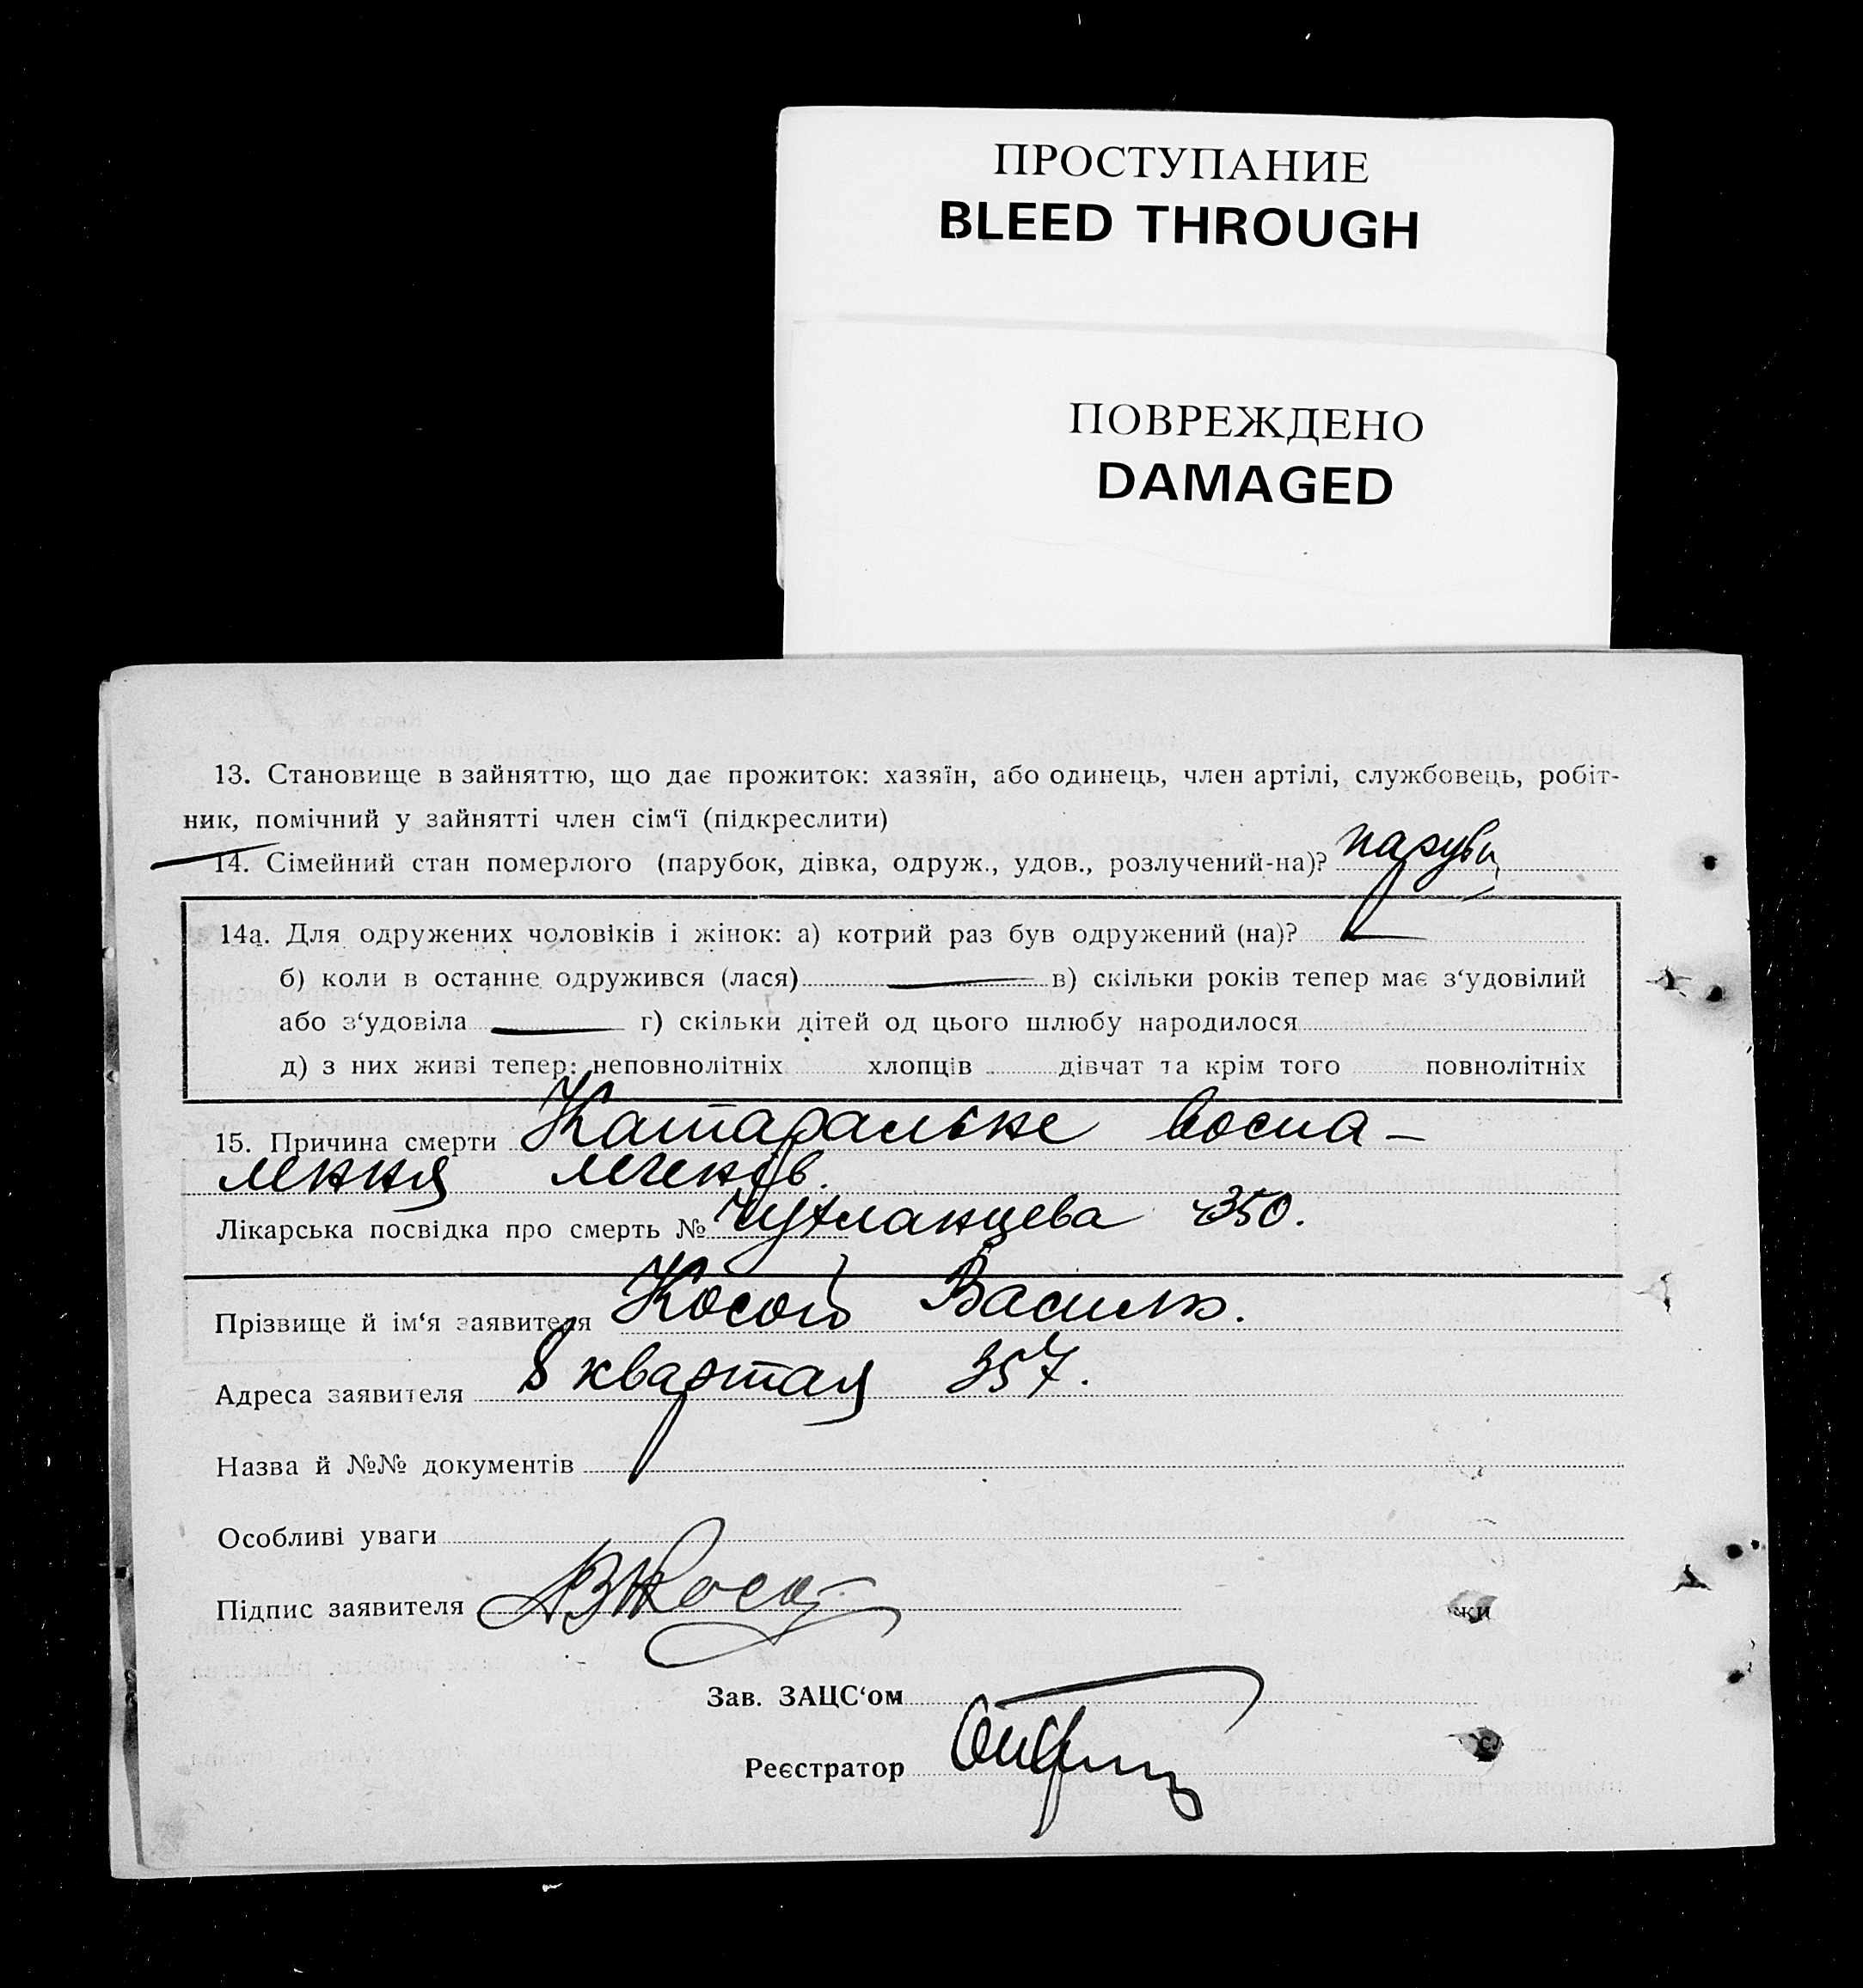 ПРОСТУПАНИЕ
BLEED THROUGH
ПОВРЕЖДЕНО
DAMAGED
13. Становище в зайняттю, що дає прожиток: хазяїн, або одинець, член артілі, службовець, робіт-
ник, помічний у зайнятті член сім‘ї (підкреслити)
14. Сімейний стан померлого (парубок, дівка, одруж., удов., розлучений-на)?
14а. Для одружених чоловіків і жінок: а) котрий раз був одружений (на)?
б) коли в останне одружився (лася) — в) скільки років тепер має з‘удовілий
або з‘удовіла — г) скільки дітей од цього шлюбу народилося
д) з них живі тепер: неповнолітніх хлопців дівчат та крім того повнолітніх
15. Причина смерти Катаральне воспа-
лення легенів.
Лікарська посвідка про смерть № 350.
Прізвище й ім‘я заявителя Косой Василь.
Адреса заявителя 8 квартал 357.
Назва й №№ документів
Особливі уваги
Підпис заявителя ВКосой
жи
Зав. ЗАЦС‘ом
Реєстратор